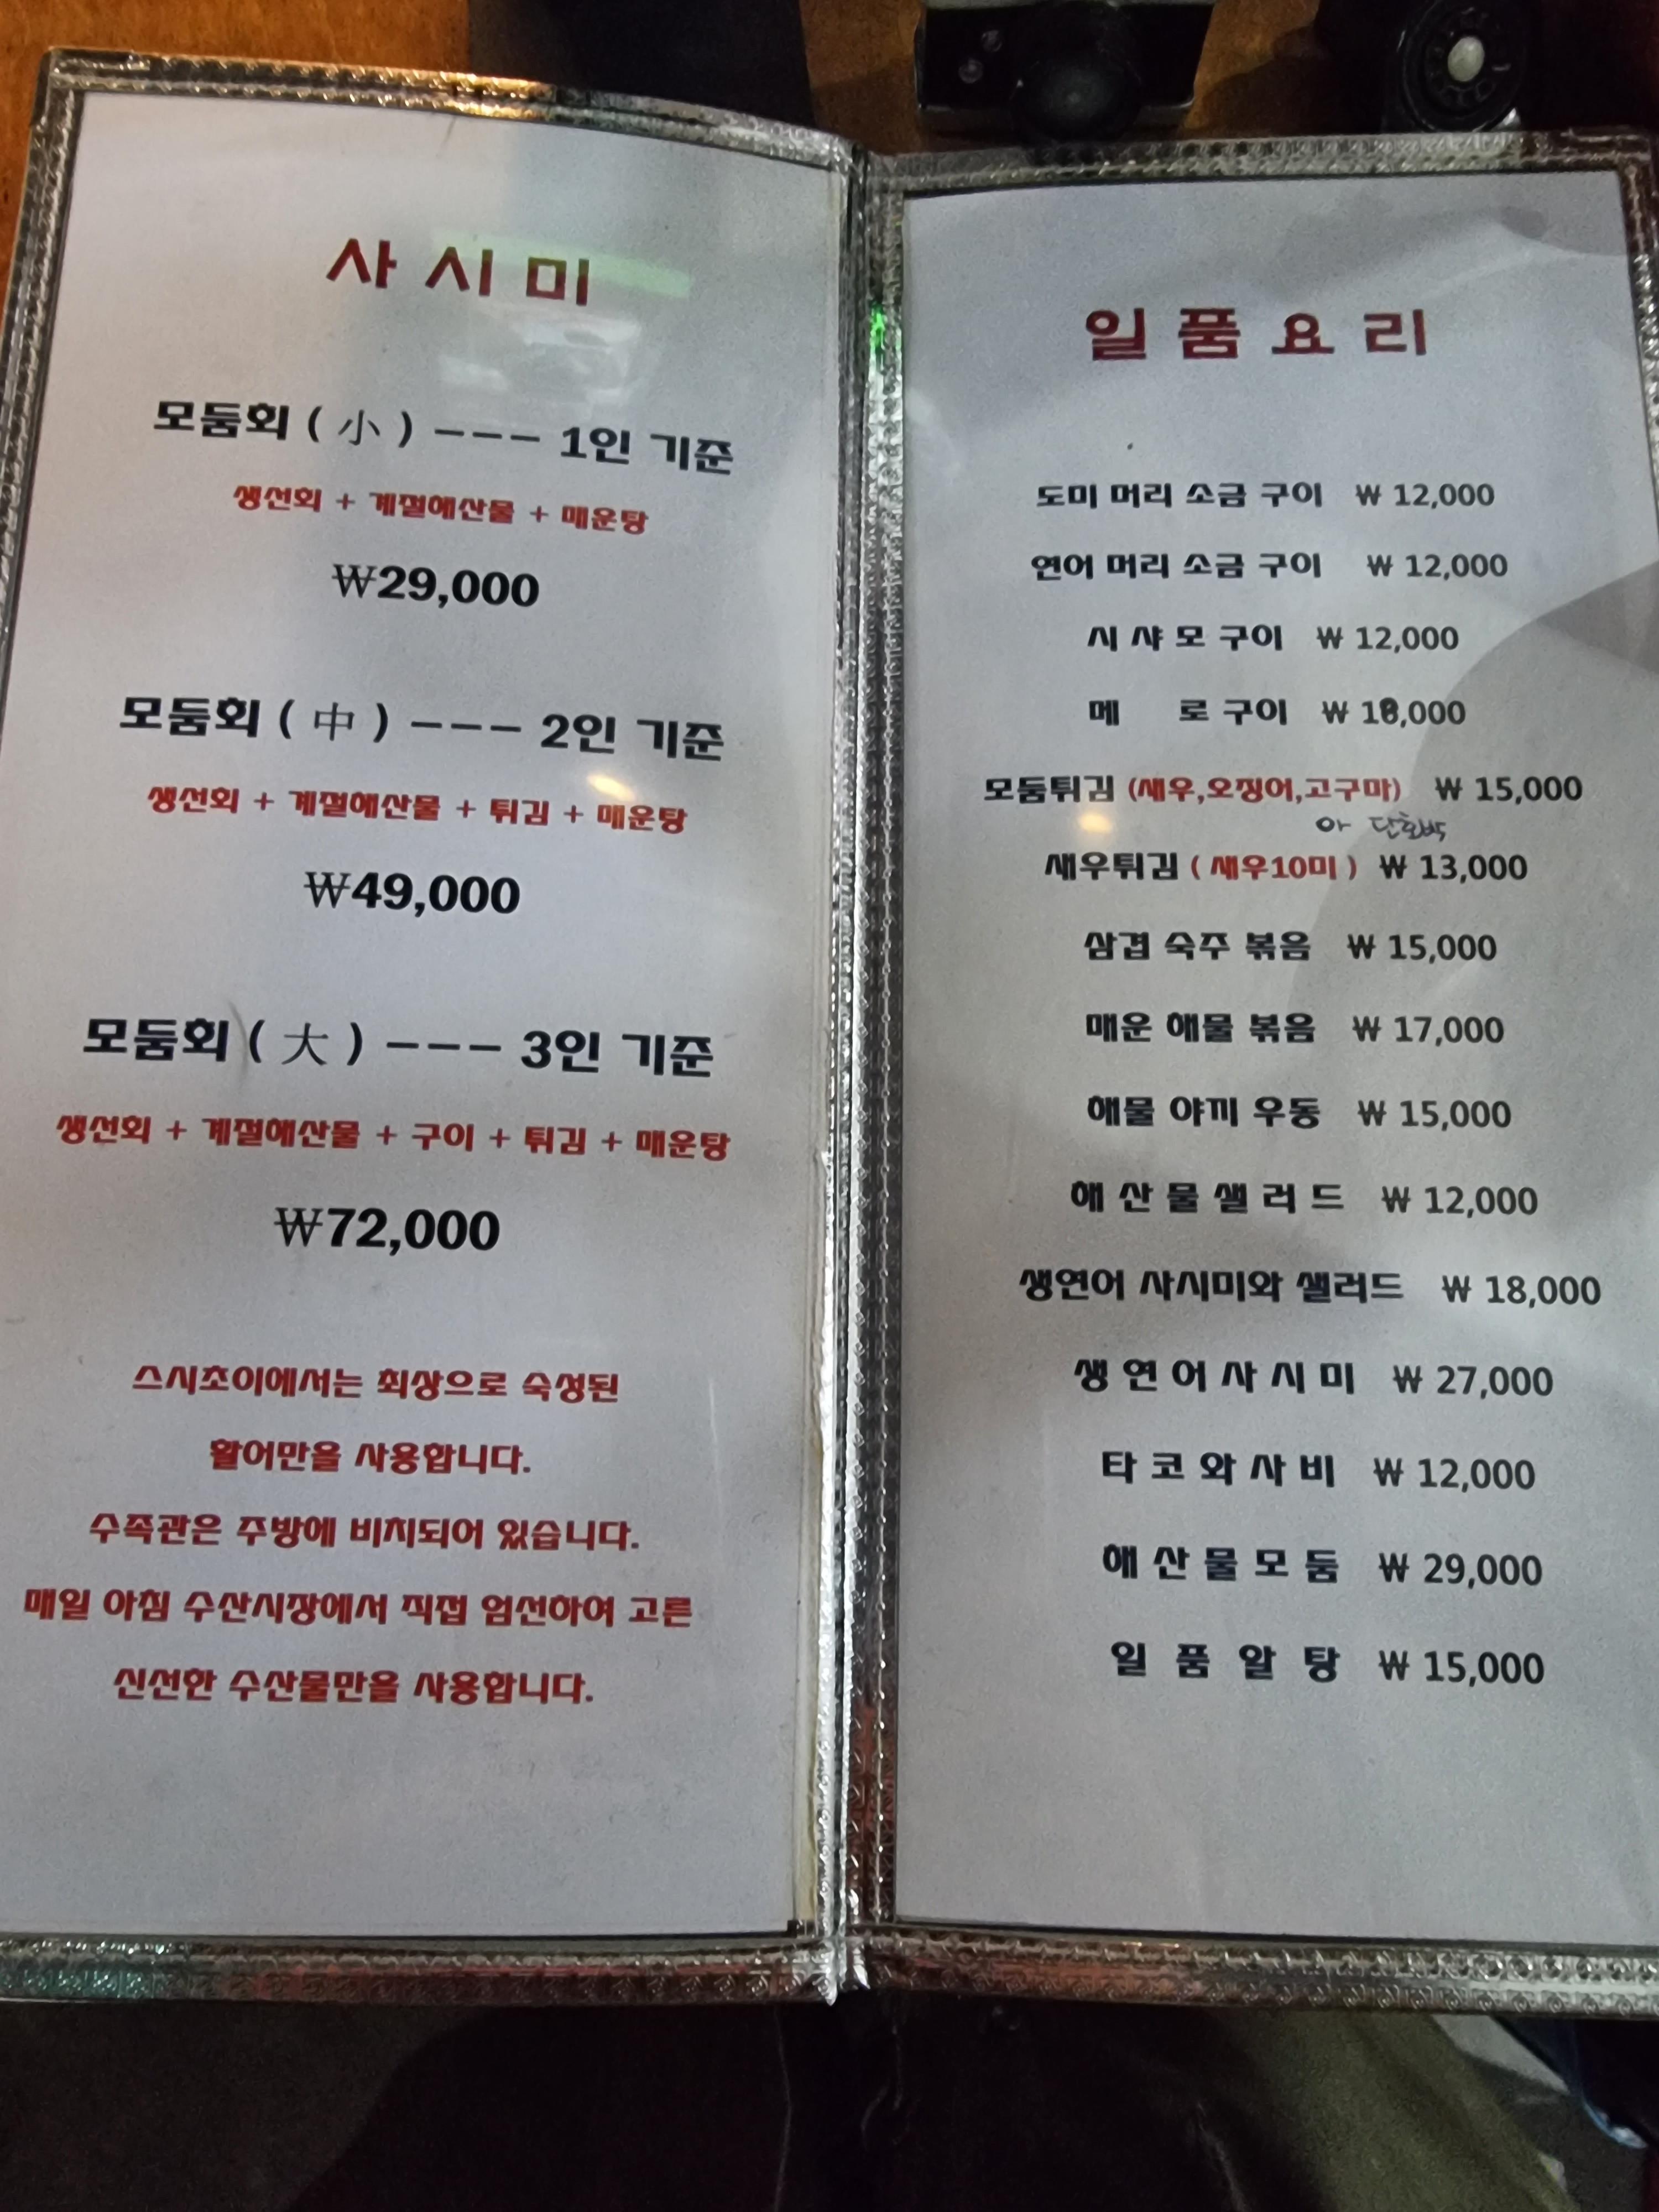 사시미
모둠회 ( 小 ) --- 1인 기준
생선회 + 계절해산물 + 매운탕
₩29,000
모둠회 ( 中 ) --- 2인 기준
생선회 + 계절해산물 + 튀김 + 매운탕
₩49,000
모둠회 ( 大 ) --- 3인 기준
생선회 + 계절해산물 + 구이 + 튀김 + 매운탕
₩72,000
스시초이에서는 최상으로 숙성된
활어만을 사용합니다.
수족관은 주방에 비치되어 있습니다.
매일 아침 수산시장에서 직접 엄선하여 고른
신선한 수산물만을 사용합니다.
일품요리
도미 머리 소금 구이 ₩ 12,000
연어 머리 소금 구이 ₩ 12,000
시 샤 모 구이 ₩ 12,000
메 로 구이 ₩ 18,000
모둠튀김 (새우,오징어,고구마) ₩ 15,000
단호박
새우튀김 ( 새우10미 ) ₩ 13,000
삼겹 숙주 볶음 ₩ 15,000
매운 해물 볶음 ₩ 17,000
해물 야끼 우동 ₩ 15,000
해 산 물 샐 러 드 ₩ 12,000
생연어 사시미와 샐러드 ₩ 18,000
생 연 어 사 시 미 ₩ 27,000
타 코 와 사 비 ₩ 12,000
해 산 물 모 둠 ₩ 29,000
일 품 알 탕 ₩ 15,000